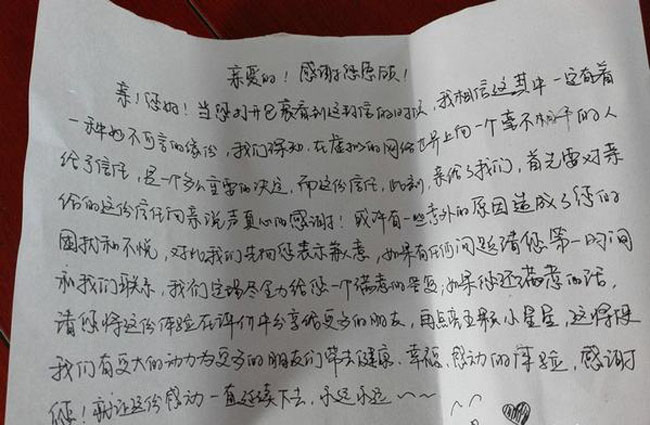 亲爱的！感谢您愿颀！
亲！您好！当您打开包裹看到这封信的时候，我相信这其中一定有着
一种妙不可言的缘份，我们深知，在虚拟的网络世界上向一个毫不相干的人
给予信任，是一个多么重要的决定，而这份信任，此刻，亲给了我们，首先需对亲
给的这份信任向亲说声真心的感谢！或许有一些意外的原因造成了您的
困扰和不悦，对此我们先向您表示歉意，如果有任何问题请您第一时间
和我们联系，我们定将尽全力给您一个满意的答复；如果您还满意的话，
请您将这份体验在评价中分享给更多的朋友，再点亮五颗小星星，这将使
我们有更大的动力为更多的朋友们带去健康、幸福、感动的体验，感谢
您！就让这份感动一直延续下去，永远永远～～